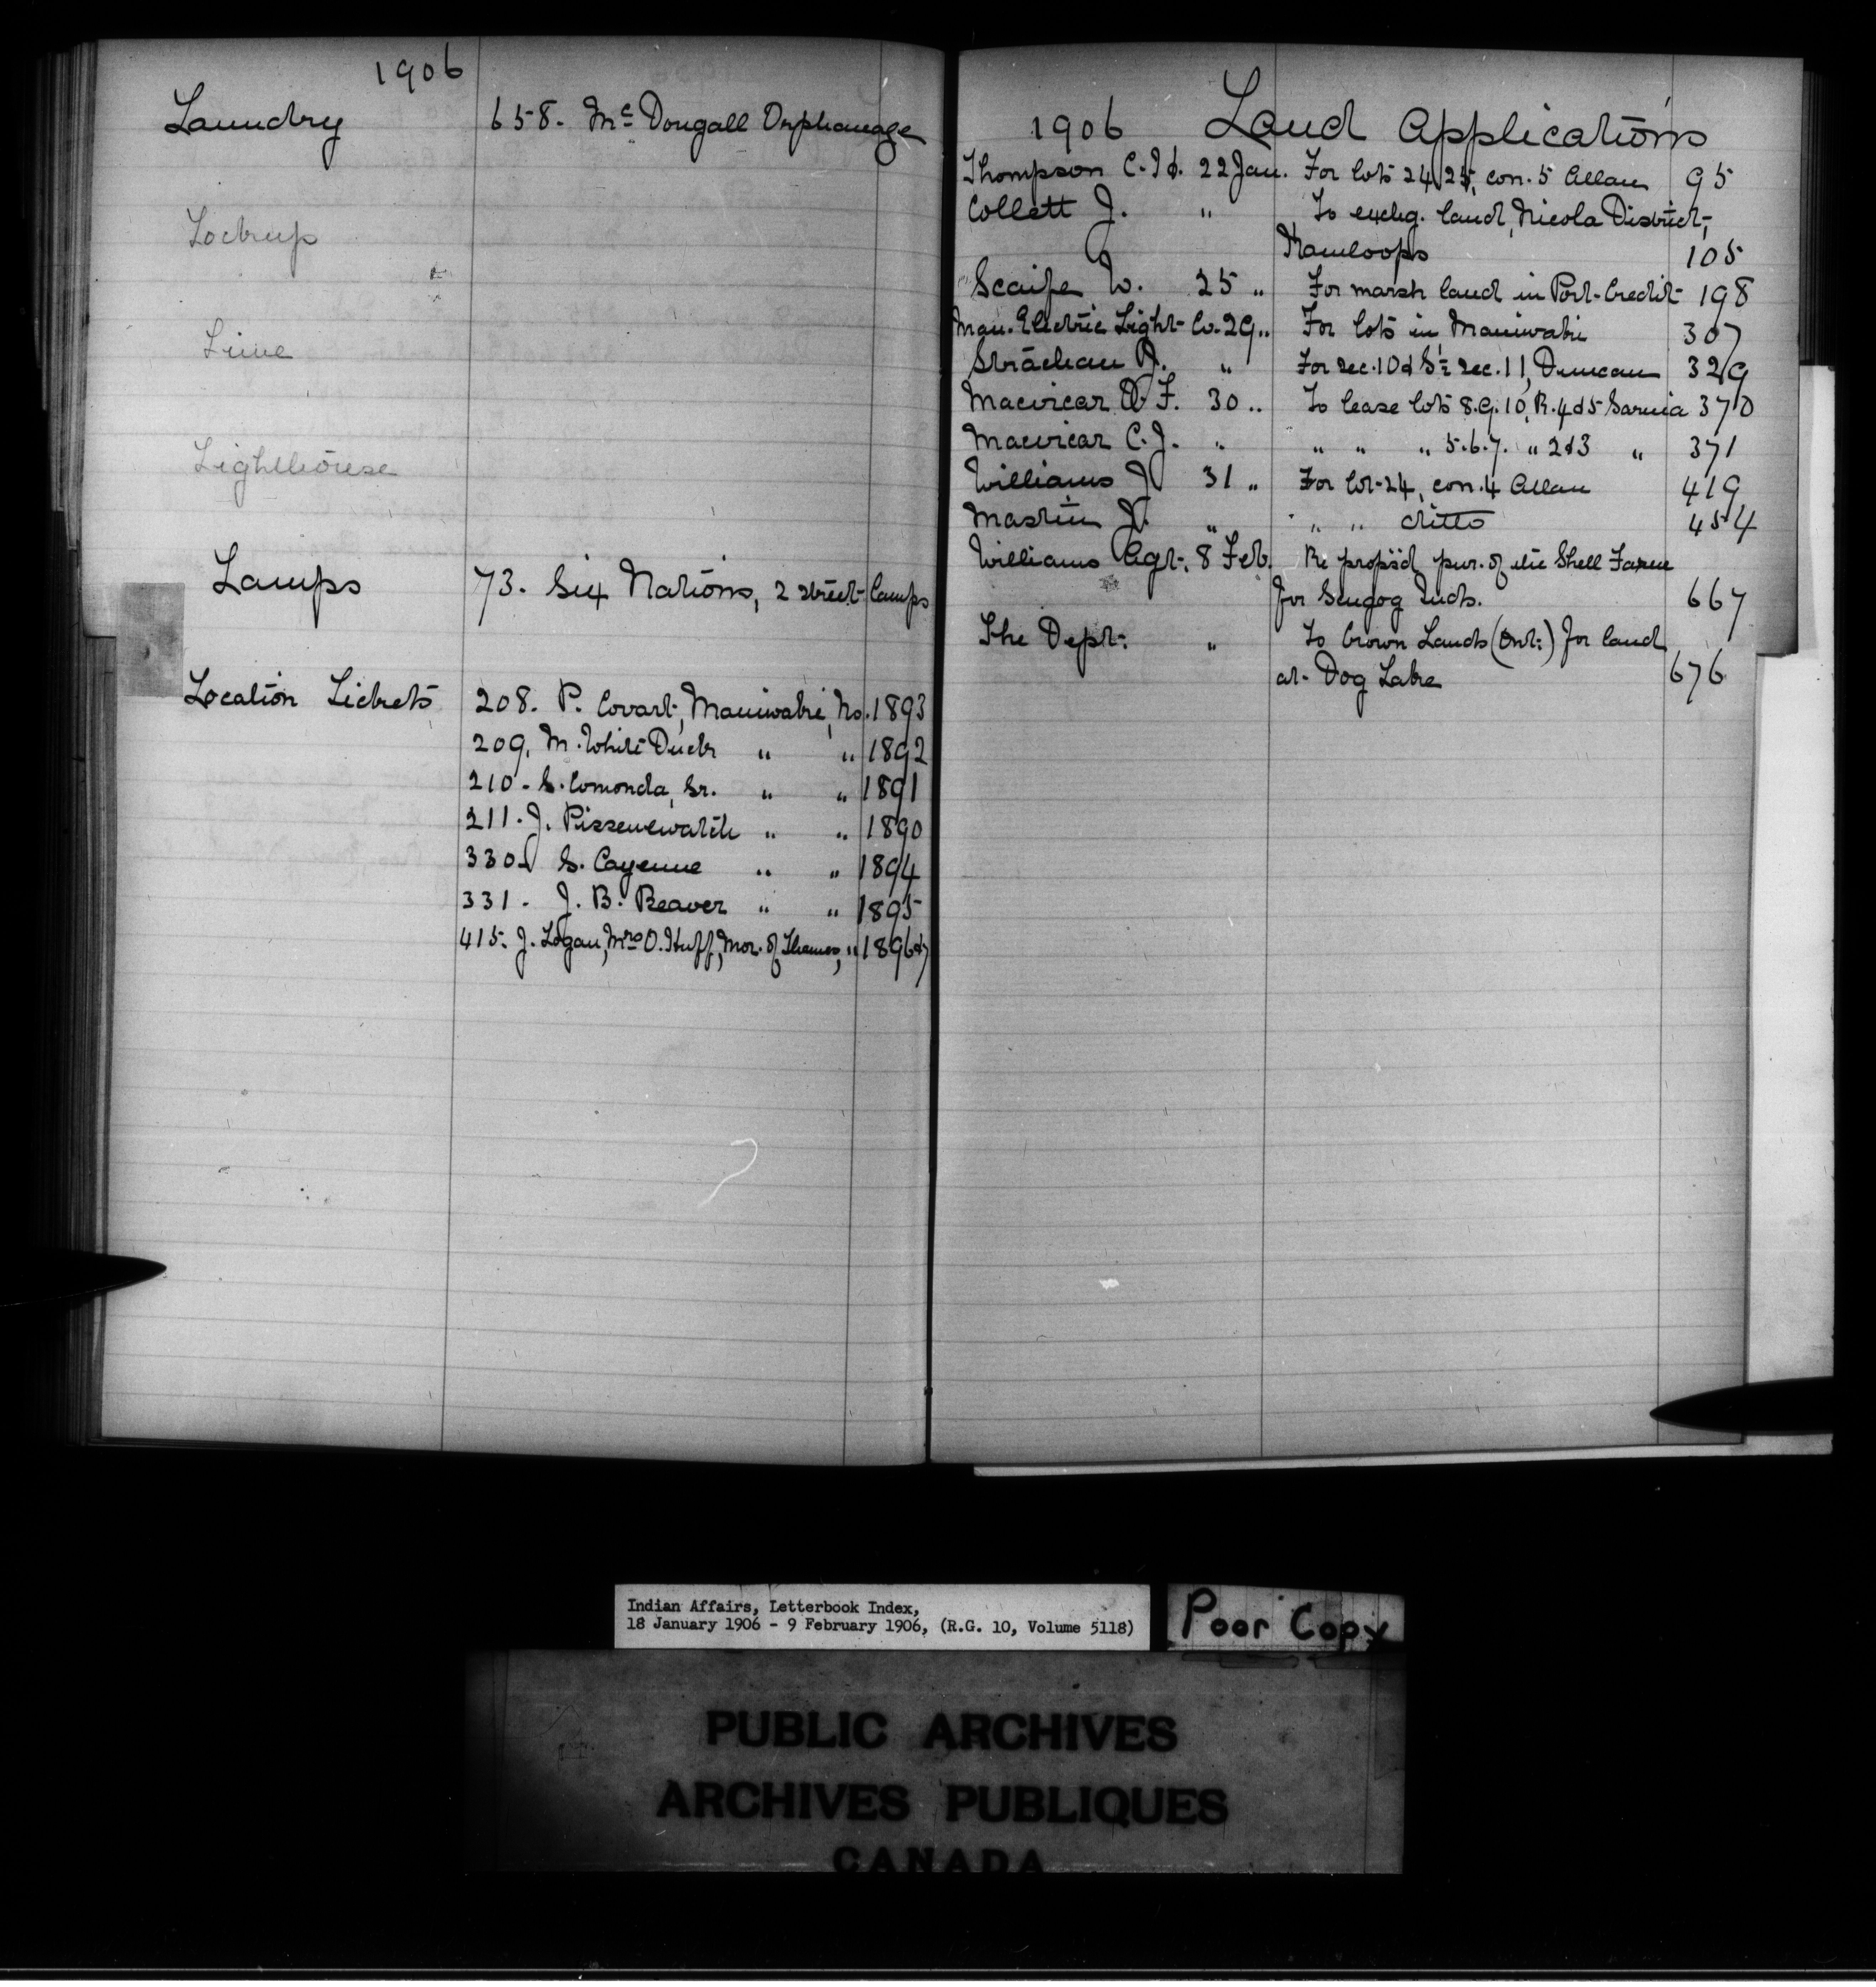 1906
Laundry 658. Mc Dougall Orphanage
Lockup
Lime
Lighthouse
Lamps 73. Six Nations, 2 street lamps
Location Tickets 208. P. Covart, Maniwaki, No. 1893
209. M. White Duck " " 1892
210. S. Comonda, Sr. " " 1891
211. J. " " 1890
330. S. Cayenne " " 1894
331. J. B. Beaver " " 1895
415. J. Logan, Mrs O. Huff, Mor. of Thames, " 1896&7
1906 Land Applications
Thompson C. 22 Jan. For lots 24, 25, con. 5 Allan 95
Collett J. " To exchg. land, Nicola District,
Kamloops 105
Scaife W. 25 " For marsh land in Port Credit 198
Man. Electric Light Co. 29 " For lots in Maniwaki 307
Strachan J. " For sec. 10 & S½ sec. 11, Duncan 329
Macvicar D F. 30 " To lease lots 8.9.10, R. 4 & 5 Sarnia 370
Macvicar C. J. " " " " 5.6.7. " 2 & 3 " 371
Williams J 31 " For lot 24, con. 4 Allan 419
Mastin J. " " " ditto 454
Williams Agt. 8 Feb. Re propsd pur. of the Shell Farm
for Scugog Inds. 667
The Dept. " To Crown Lands (Ont.) for land
at Dog Lake 676
Indian Affairs, Letterbook Index,
18 January 1906 - 9 February 1906, (R.G. 10, Volume 5118)
Poor Copy
PUBLIC ARCHIVES
ARCHIVES PUBLIQUES
CANADA